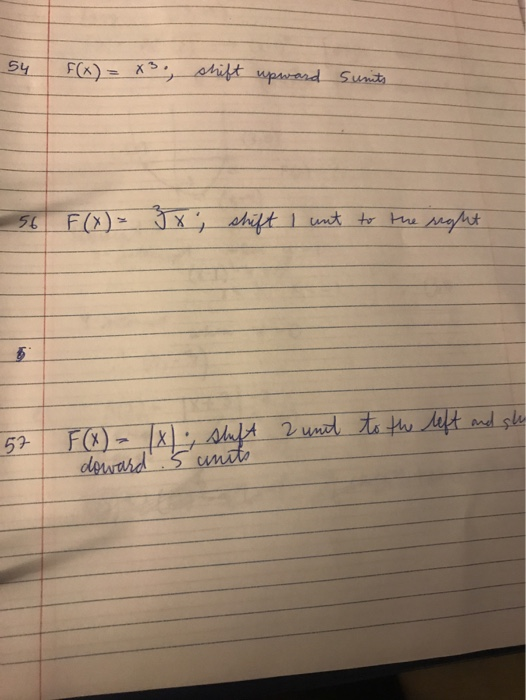 54 F(x) = x³; shift upward 5 units
56 F(x) = ∛x; shift 1 unt to the right
5
57 F(x) = |x|; shift 2 unit to the left and
doward .5 units